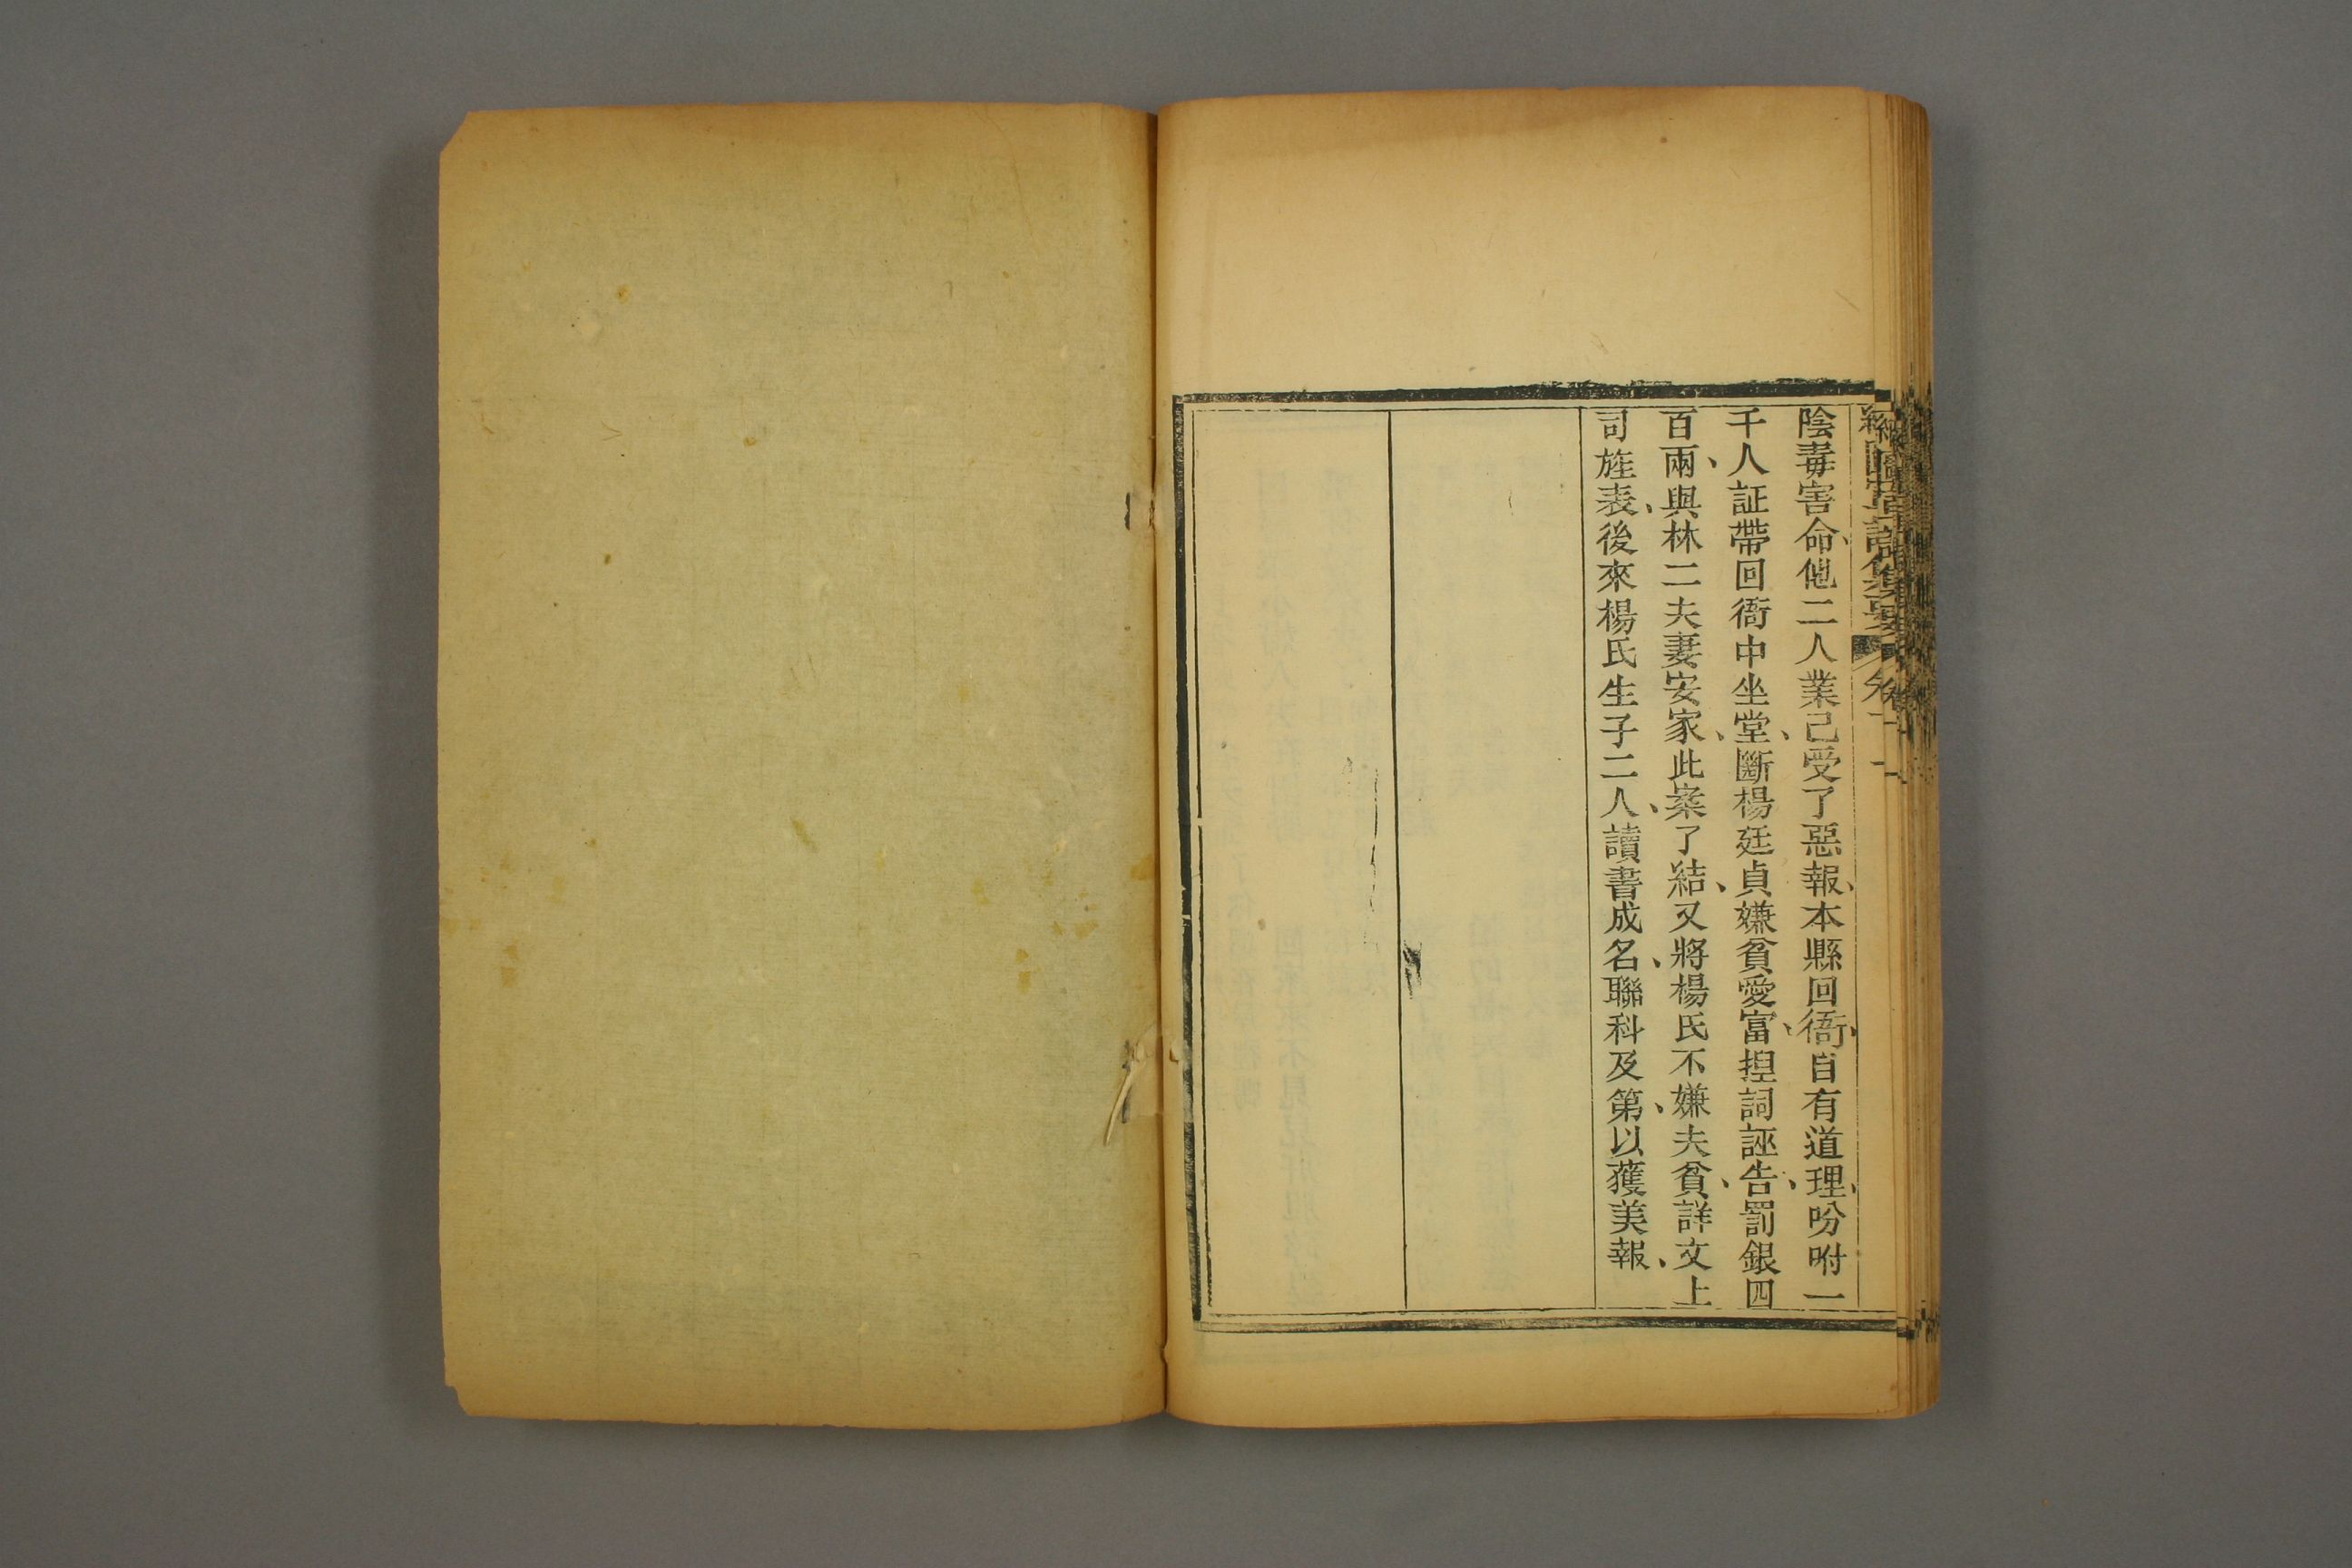 陰毒害命、他二人業已受了惡報、本縣回衙、自有道理、吩咐一
千人証帶回衙中坐堂、斷楊廷貞嫌貧愛富、捏詞誣告、罰銀四
百兩、與林二夫妻安家、此案了結、又將楊氏不嫌夫貧、詳文上
司旌表、後來楊氏生子二人、讀書成名、聯科及第、以獲美報、